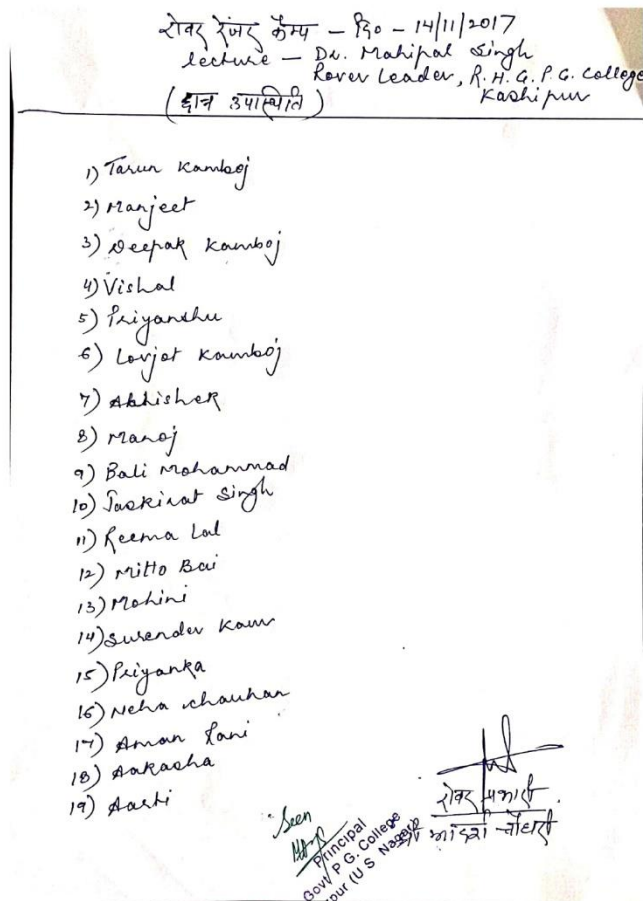 रोवर रेंजर कैम्प – दि० – 14/11/2017
lecture – Dr. Mahipal Singh
Rover Leader, R. H. G. P. G. College
Kashipur
(छात्र उपस्थिति)
1) Tarun Kamboj
2) Manjeet
3) Deepak Kamboj
4) Vishal
5) Priyanshu
6) Lovjot Kamboj
7) Abhishek
8) Manoj
9) Bali Mohammad
10) Jaskirat Singh
11) Reema Lal
12) Mitto Bai
13) Mohini
14) Surender Kaur
15) Priyanka
16) Neha Chauhan
17) Aman Rani
18) Aakasha
19) Aarti
Seen
Principal
Govt P G. College
pur (U S Nagar)
रोवर प्रभारी
चौधरी